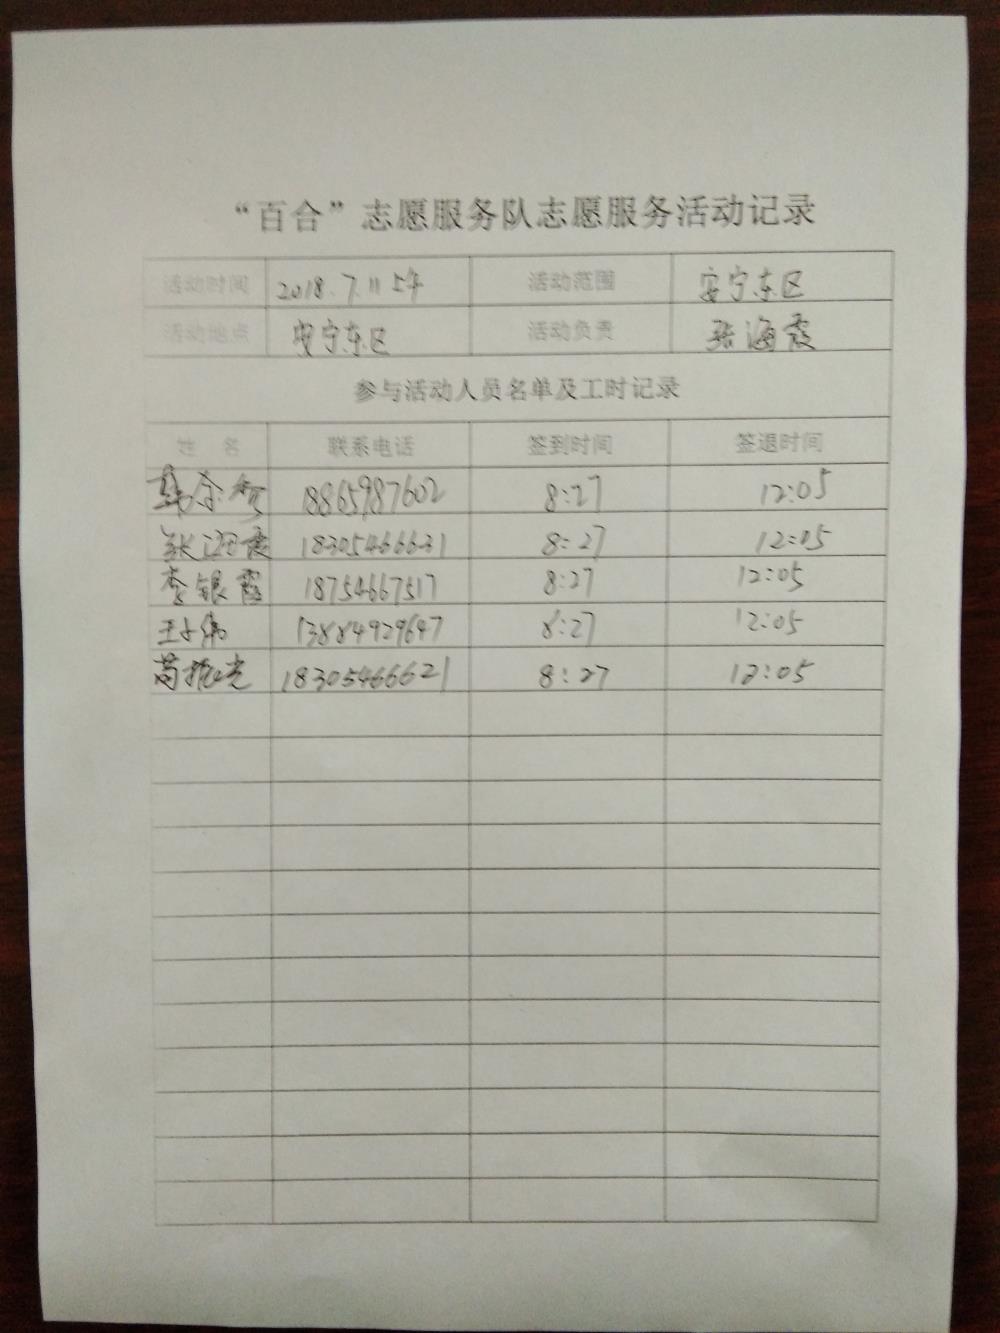 “百合”志愿服务队志愿服务活动记录
活动时间 2018.7.11 上午 活动范围 安宁东区
活动地点 安宁东区 活动负责 张海霞
参与活动人员名单及工时记录
姓 名 联系电话 签到时间 签退时间
18865987602 8:27 12:05
张海霞 18305466631 8:27 12:05
李银霞 18754667517 8:27 12:05
13884929647 8:27 12:05
18305466621 8:27 12:05